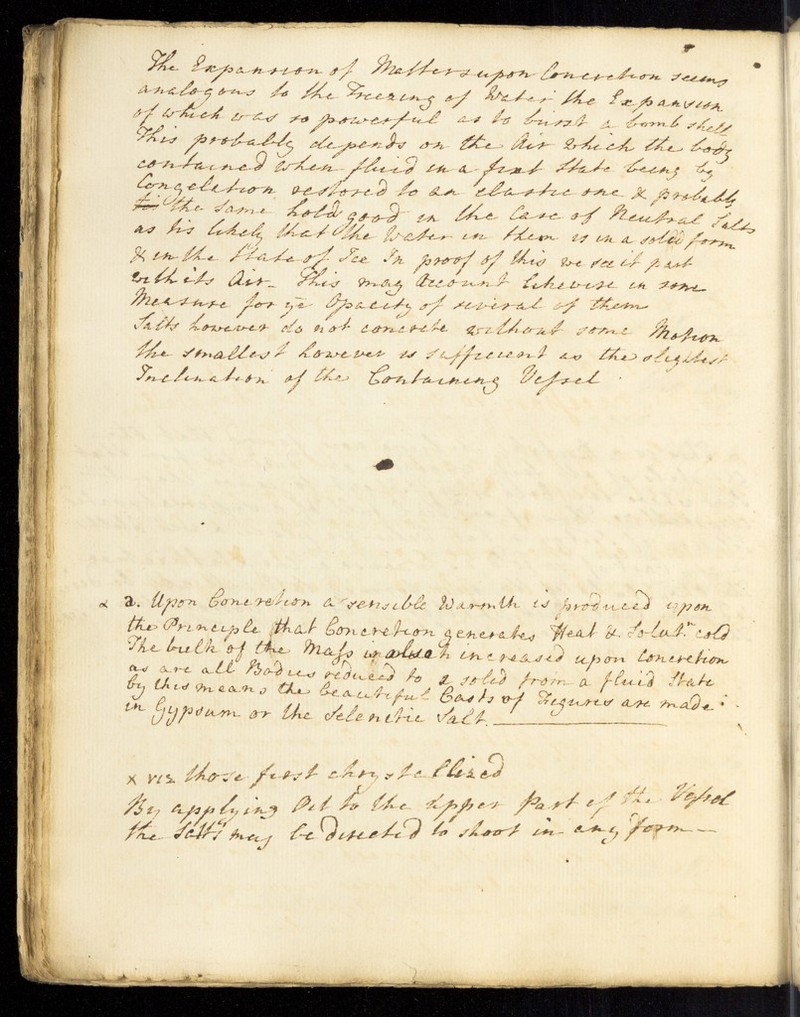 The Expansion of Matters upon Concretion seems
analogous to the Freezing of Water the Expansion
of which was so powerful as to burst a bomb shell
This probably depends on the Air which the body
contained when fluid in a fixt State being by
Congelation restored to an elastic one & probably
the same hold good in the Case of Neutral Salts
as tis likely that the Water in them is in a solid form
& in the State of Ice In proof of this we see it part
with its Air - This may account likewise in some
Measure for ye Opacity of several of them
Salts however do not concrete without some Motion
the smallest however is sufficient as the slightest
Inclination of the Containing Vessel
a. Upon Concretion a sensible Warmth is produced upon
the Principle that Concretion generates Heat & Solutn. cold
The bulk of the Mass is increased upon Concretion
as are all Bodies reduced to a solid from a fluid State
by this means the beautiful Casts of Figures are made
in Gypsum or the Selenitic Salt.
x viz those first chrystallized
By applying Oil to the upper Part of the Vessel
the Salts may be directed to shoot in any form -